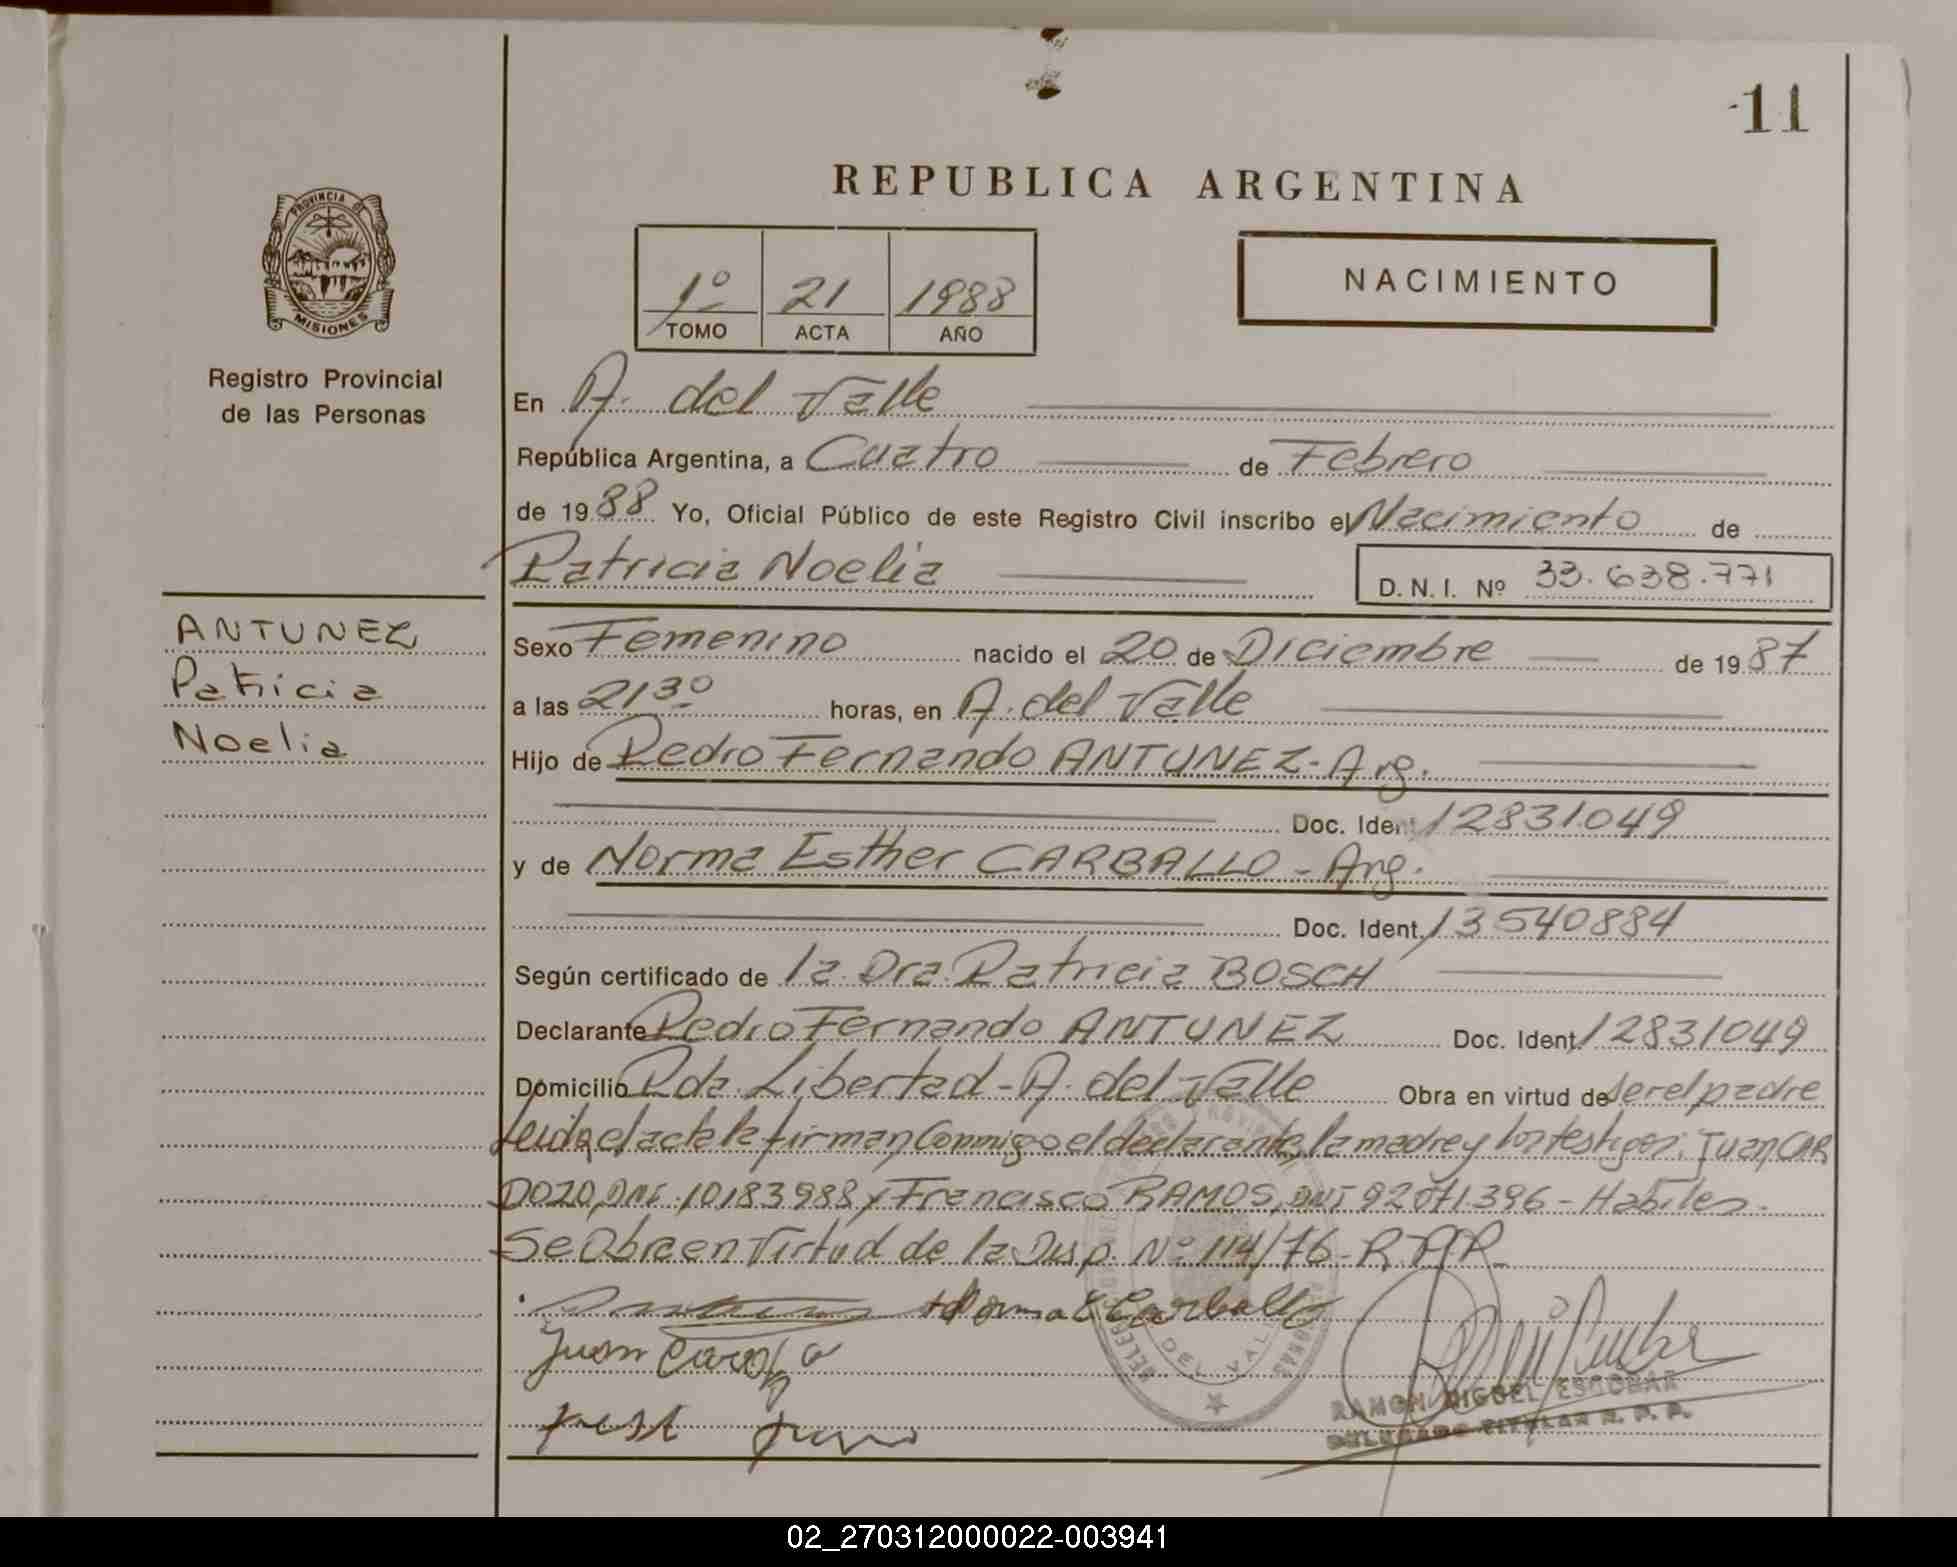 11
REPUBLICA ARGENTINA
PROVINCIA DE
MISIONES
Registro Provincial
de las Personas
1º 21 1988
TOMO ACTA AÑO
NACIMIENTO
En A. del Valle
República Argentina, a Cuatro de Febrero
de 1988 Yo, Oficial Público de este Registro Civil inscribo el Nacimiento de
Patricia Noelia D.N.I. Nº 33.638.771
ANTUNEZ
Patricia
Noelia
Sexo Femenino nacido el 20 de Diciembre de 1987
a las 21³º horas, en A. del Valle
Hijo de Pedro Fernando ANTUNEZ - Arg.
Doc. Ident. 12831049
y de Norma Esther CARBALLO - Arg.
Doc. Ident. 13540884
Según certificado de la Dra. Patricia BOSCH
Declarante Pedro Fernando ANTUNEZ Doc. Ident. 12831049
Domicilio Pda. Libertad - A. del Valle Obra en virtud de ser el padre
Leida el acta la firman Conmigo el declarante, la madre y los testigos: Juan CAR
DOZO, DNI. 10183988 y Francisco RAMOS, DNI 92071396 - Habiles.
Se Obra en Virtud de la Disp. Nº 114/76 - R.P.P.
Norma E Carballo
Juan Cardozo
DEL VALLE
RAMON MIGUEL ESCOBAR
DELEGADO TITULAR R. P. P.
02_270312000022-003941